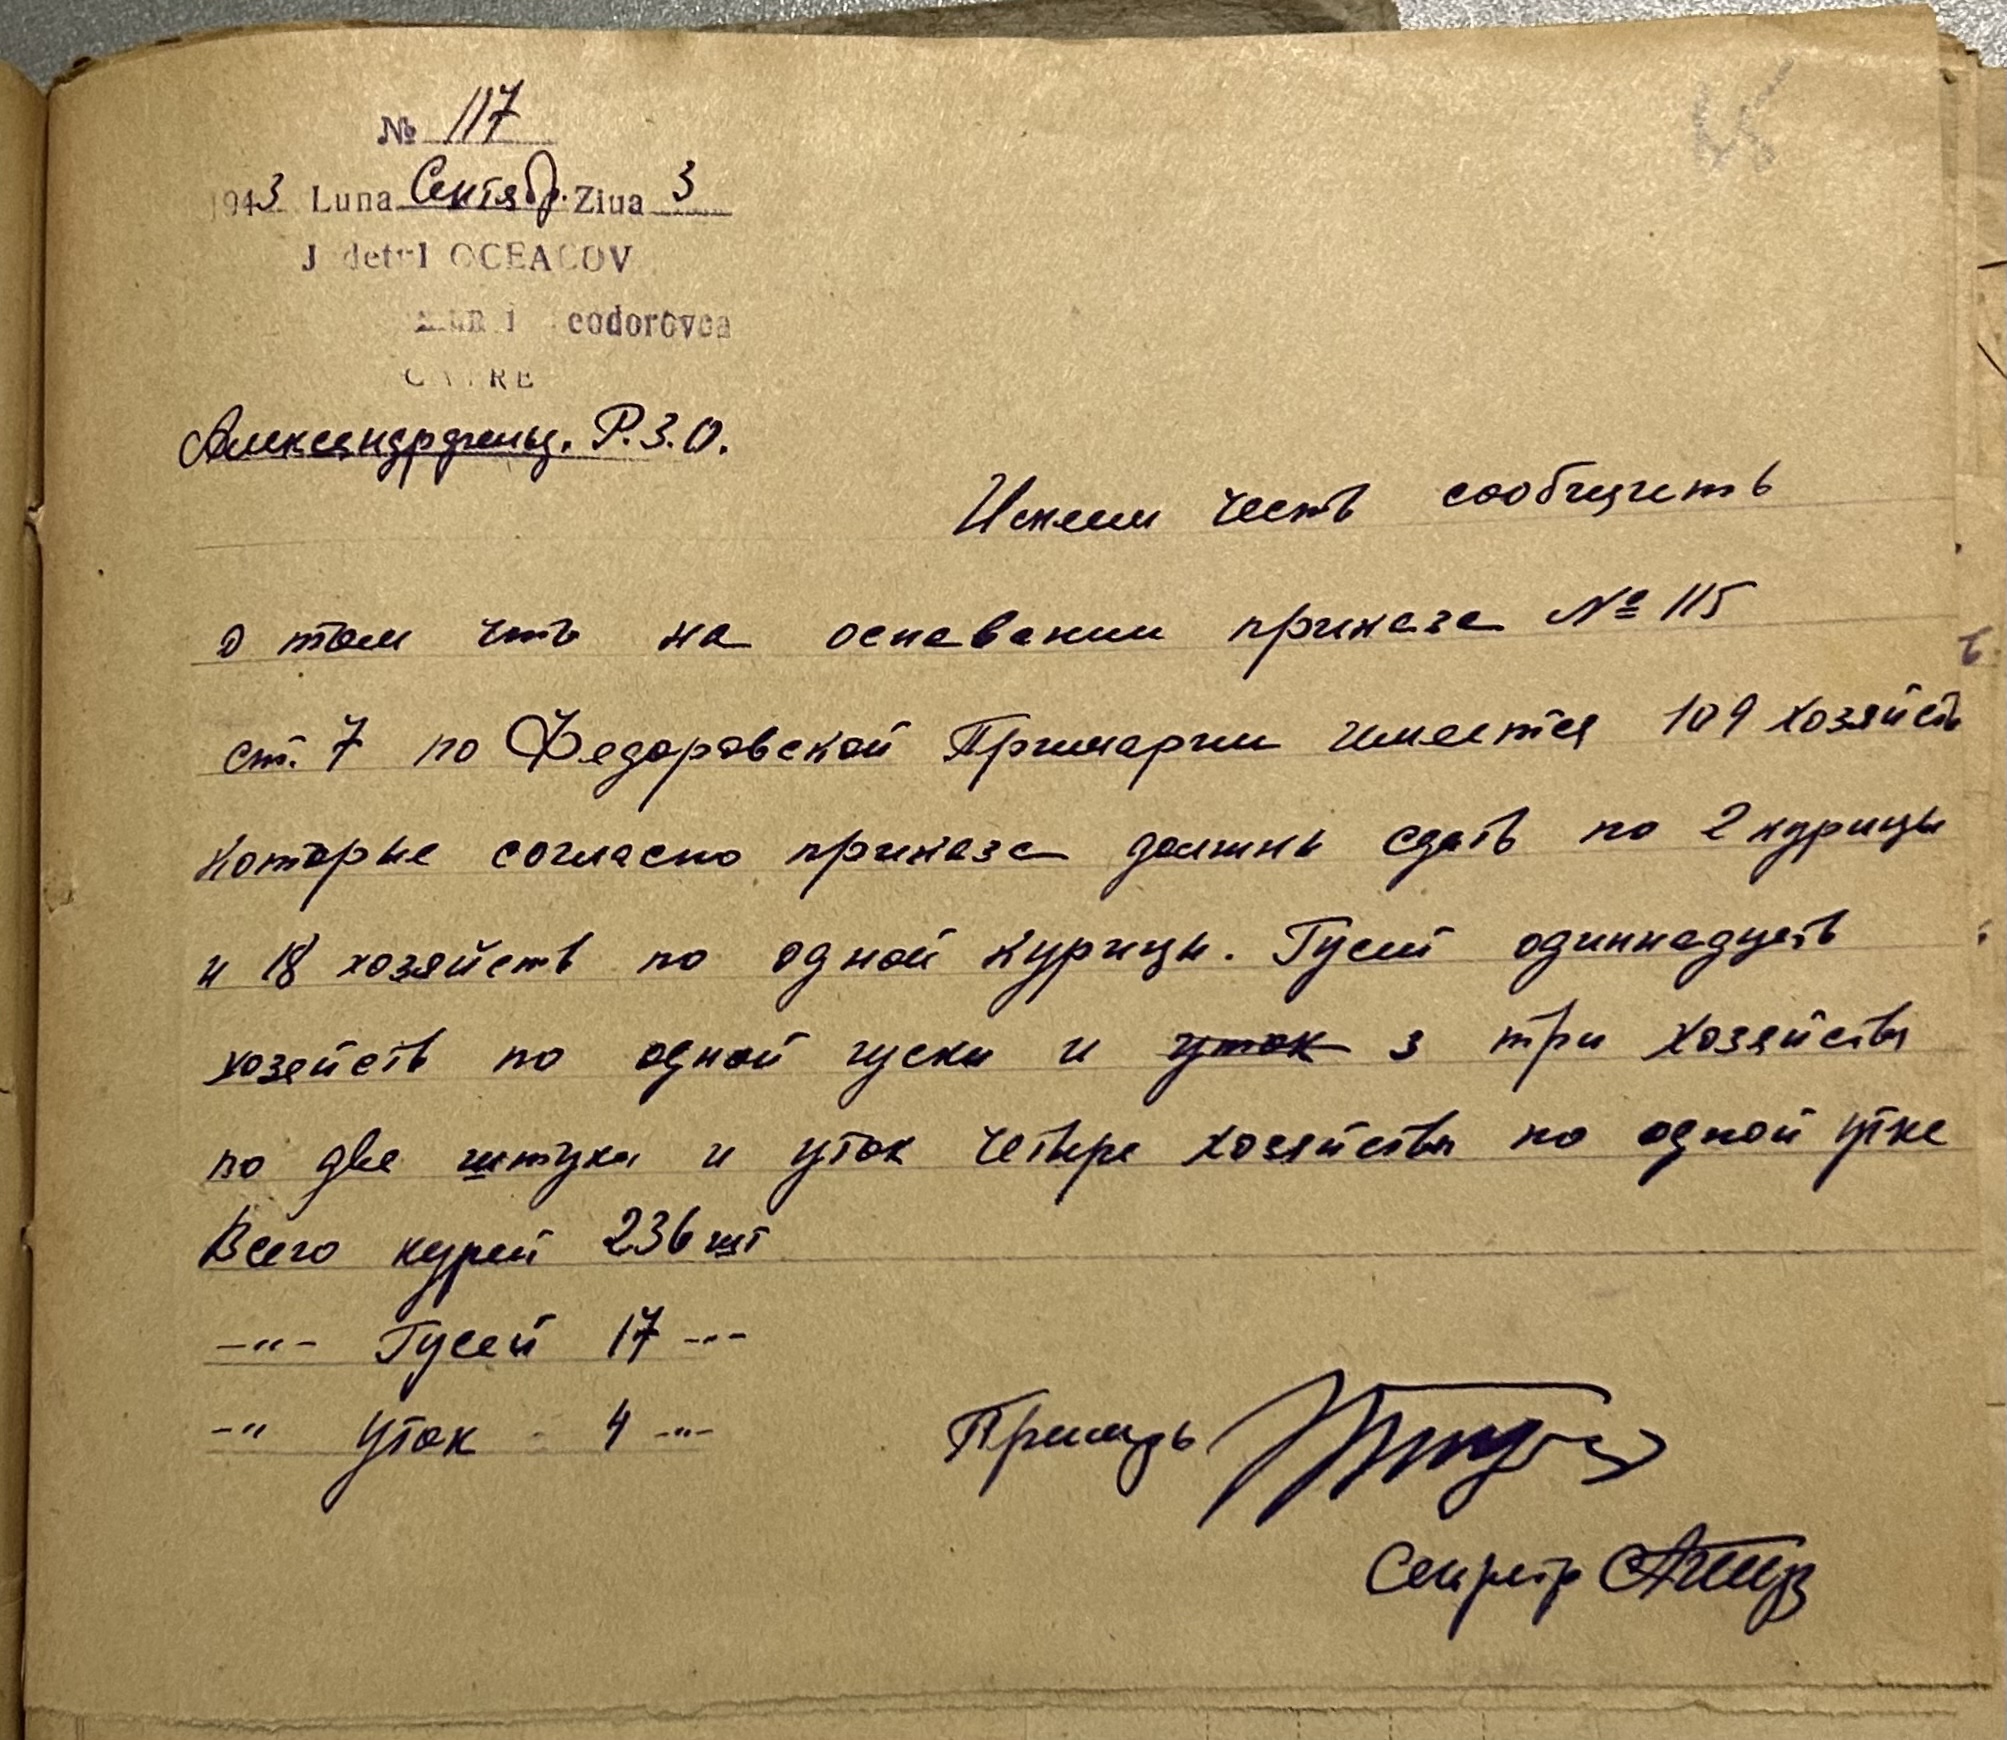 № 117
1943 Luna Сентябр. Ziua 3
J detul OCEACOV
eodorovca
CATRE
Р.З.О.
Имеем честь сообщить
о том что на основании приказа № 115
ст. 7 по Федоровской Примарии имеется 109 хозяйств
которые согласно приказа должны сдать по 2 курицы
и 18 хозяйств по одной курицы. Гусей одиннадцать
хозяйств по одной гуски и уток 3 три хозяйства
по две штуки и уток четыре хозяйства по одной утке
Всего курей 236 шт
-"- Гусей 17 -"-
-" Уток - 4 -"-
Примарь
Секретр